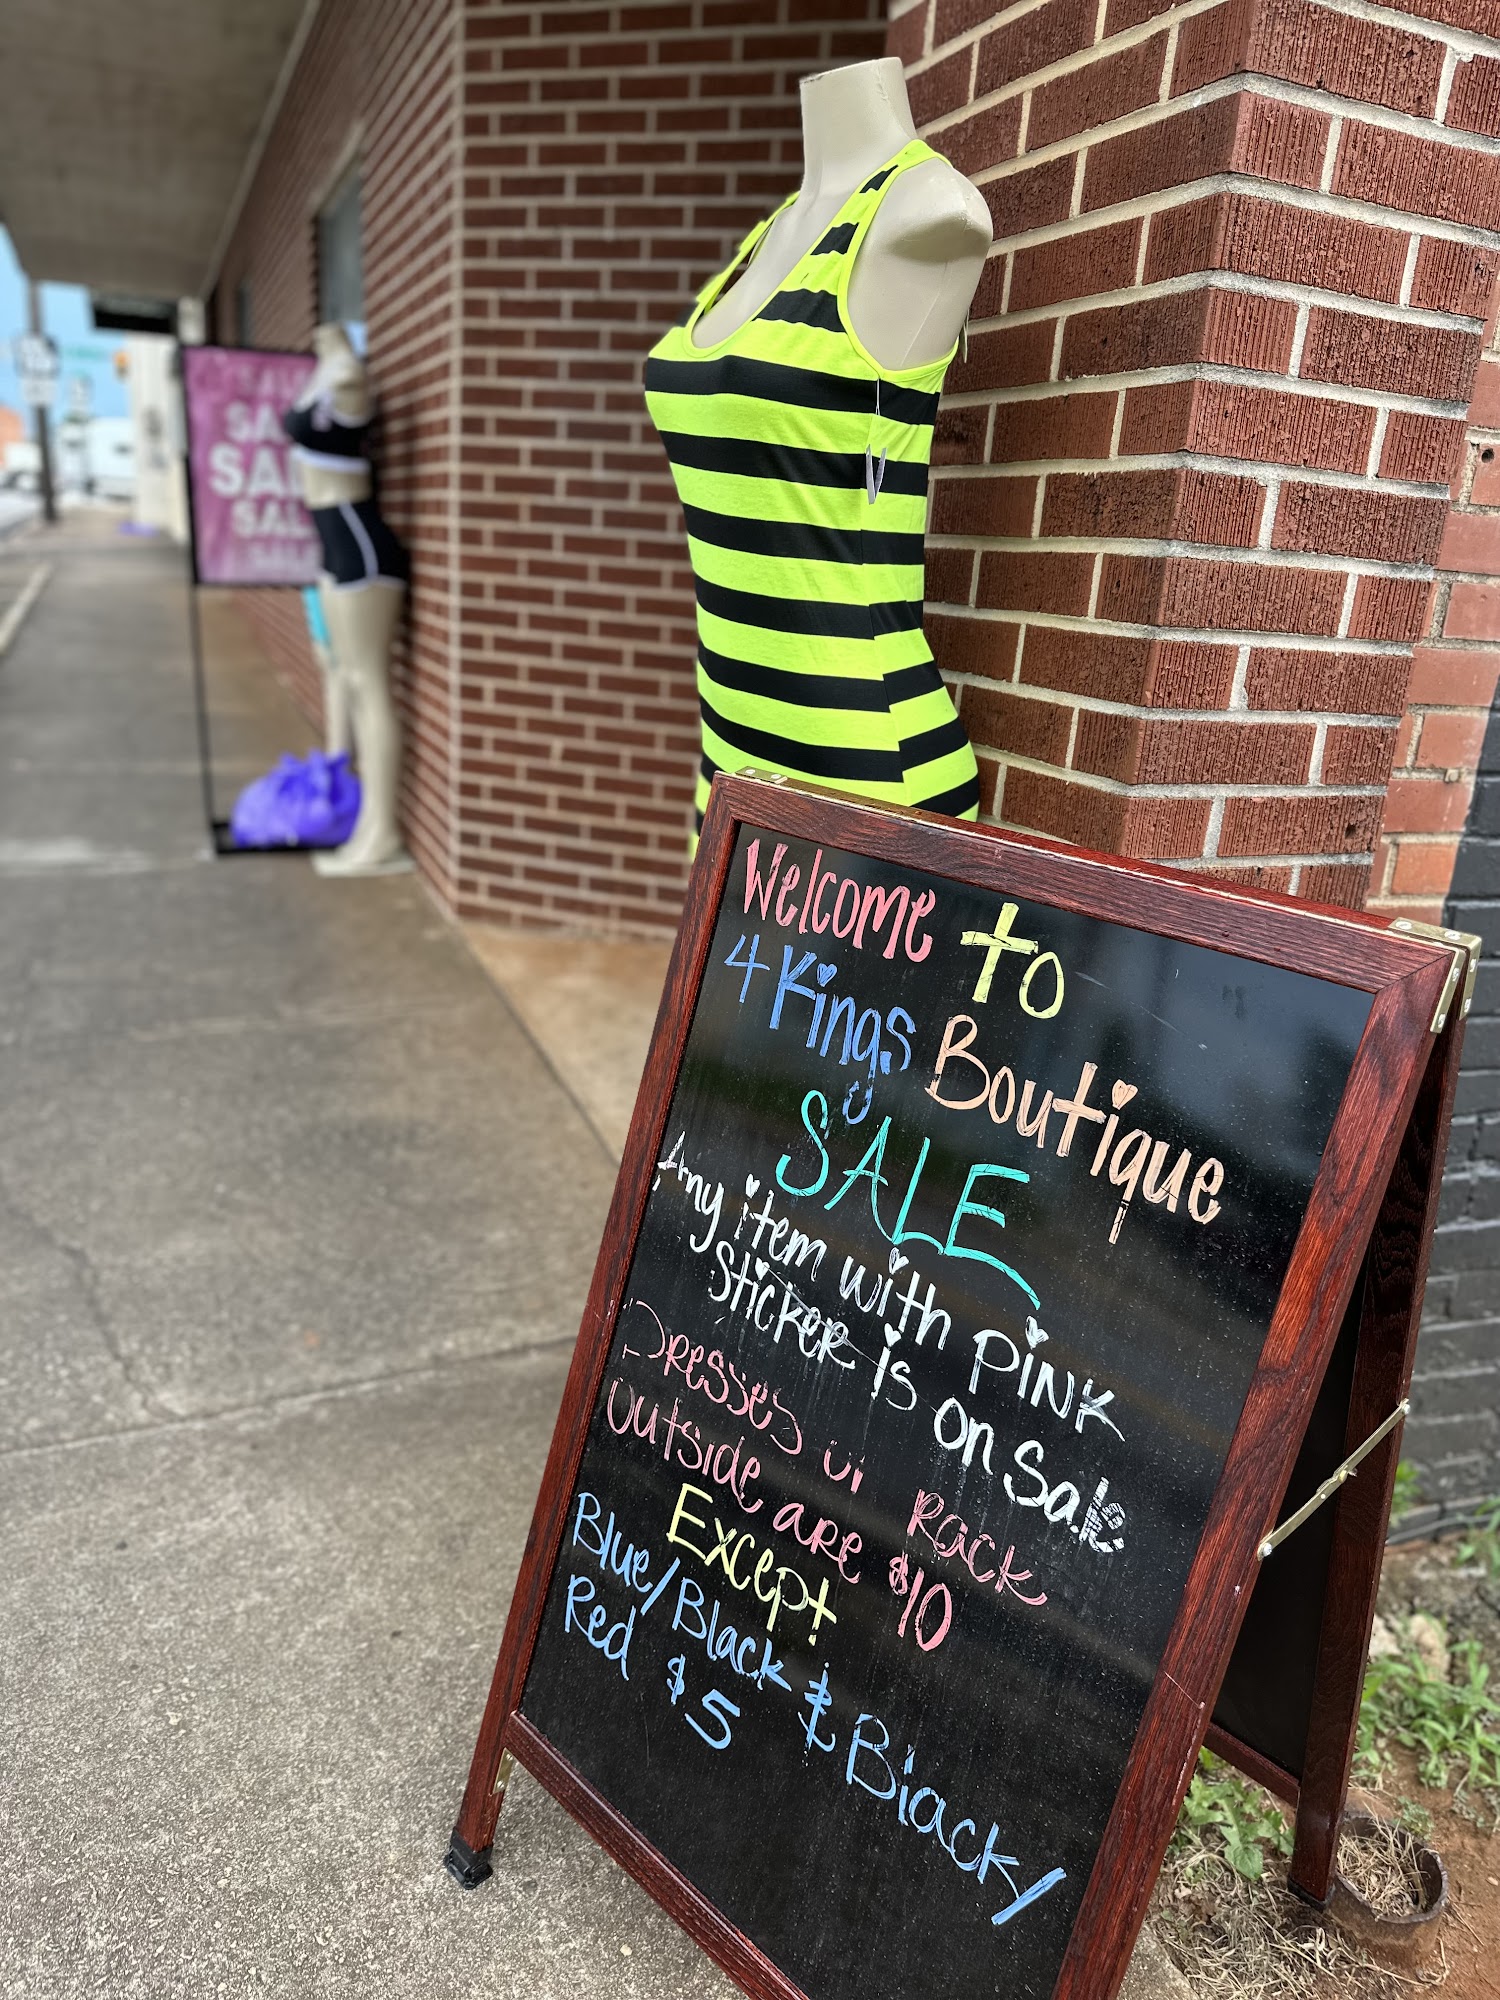 Welcome to
4 Kings Boutique
SALE
Any item with pink
sticker is on sale
Dresses on Rack
outside are $10
Except
Blue/Black & Black/
Red $5
SALE
SALE
SALE